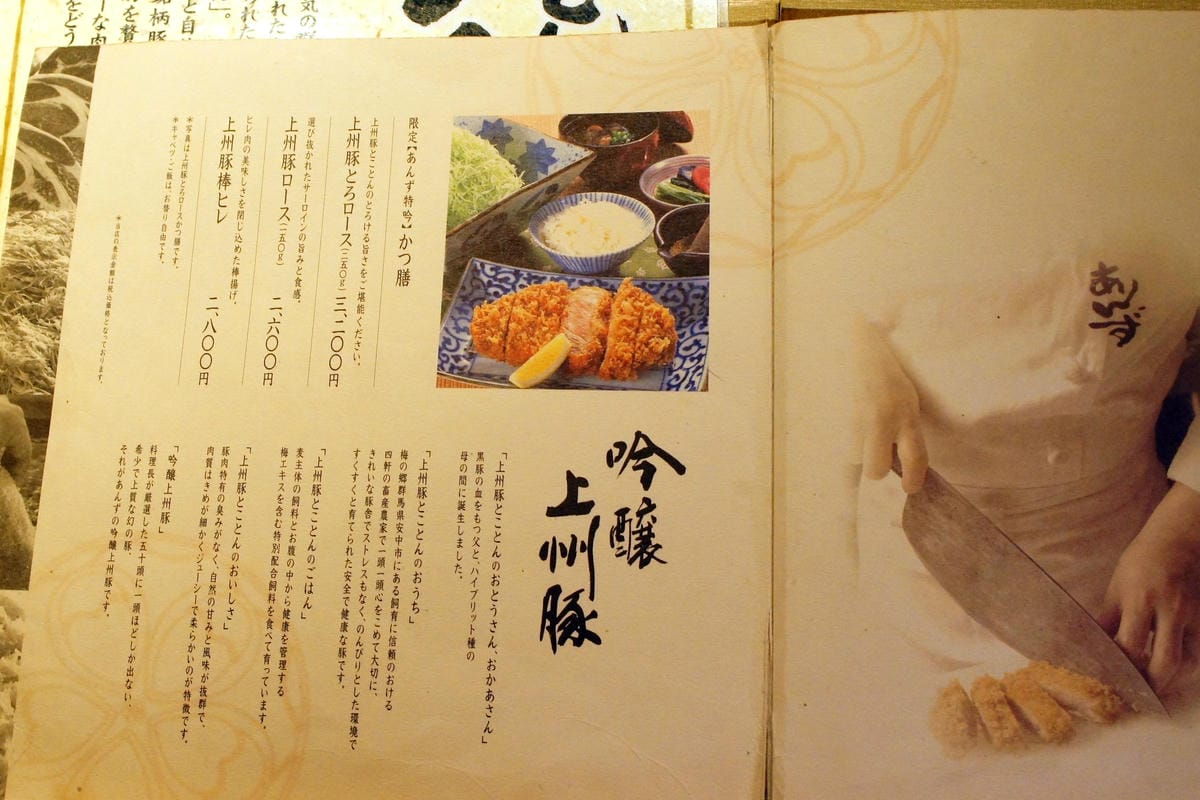 吟醸
上州豚
限定【あんず特吟】かつ膳
上州豚とことんのとろける旨さをご堪能ください。
上州豚とろロース(二五〇g)三、二〇〇円
選び抜かれたサーロインの旨みと食感。
上州豚ロース(二五〇g) 二、六〇〇円
ヒレ肉の美味しさを閉じ込めた棒揚げ。
上州豚棒ヒレ 二、八〇〇円
*写真は上州豚とろロースかつ膳です。
*キャベツ・ご飯は、お替り自由です。
*当店の表示金額は税込価格となっております。
「上州豚とことんのおとうさん、おかあさん」
黒豚の血をもつ父と、ハイブリット種の
母の間に誕生しました。
「上州豚とことんのおうち」
梅の郷群馬県安中市にある飼育に信頼のおける
四軒の畜産農家で一頭一頭心をこめて大切に、
きれいな豚舎でストレスもなく、のんびりとした環境で
すくすくと育てられた安全で健康な豚です。
「上州豚とことんのごはん」
麦主体の飼料とお腹の中から健康を管理する
梅エキスを含む特別配合飼料を食べて育っています。
「上州豚とことんのおいしさ」
豚肉特有の臭みがなく、自然の甘みと風味が抜群で、
肉質はきめが細かくジューシーで柔らかいのが特徴です。
「吟醸上州豚」
料理長が厳選した五十頭に一頭ほどしか出ない、
希少で上質な幻の豚、
それがあんずの吟醸上州豚です。
あんず